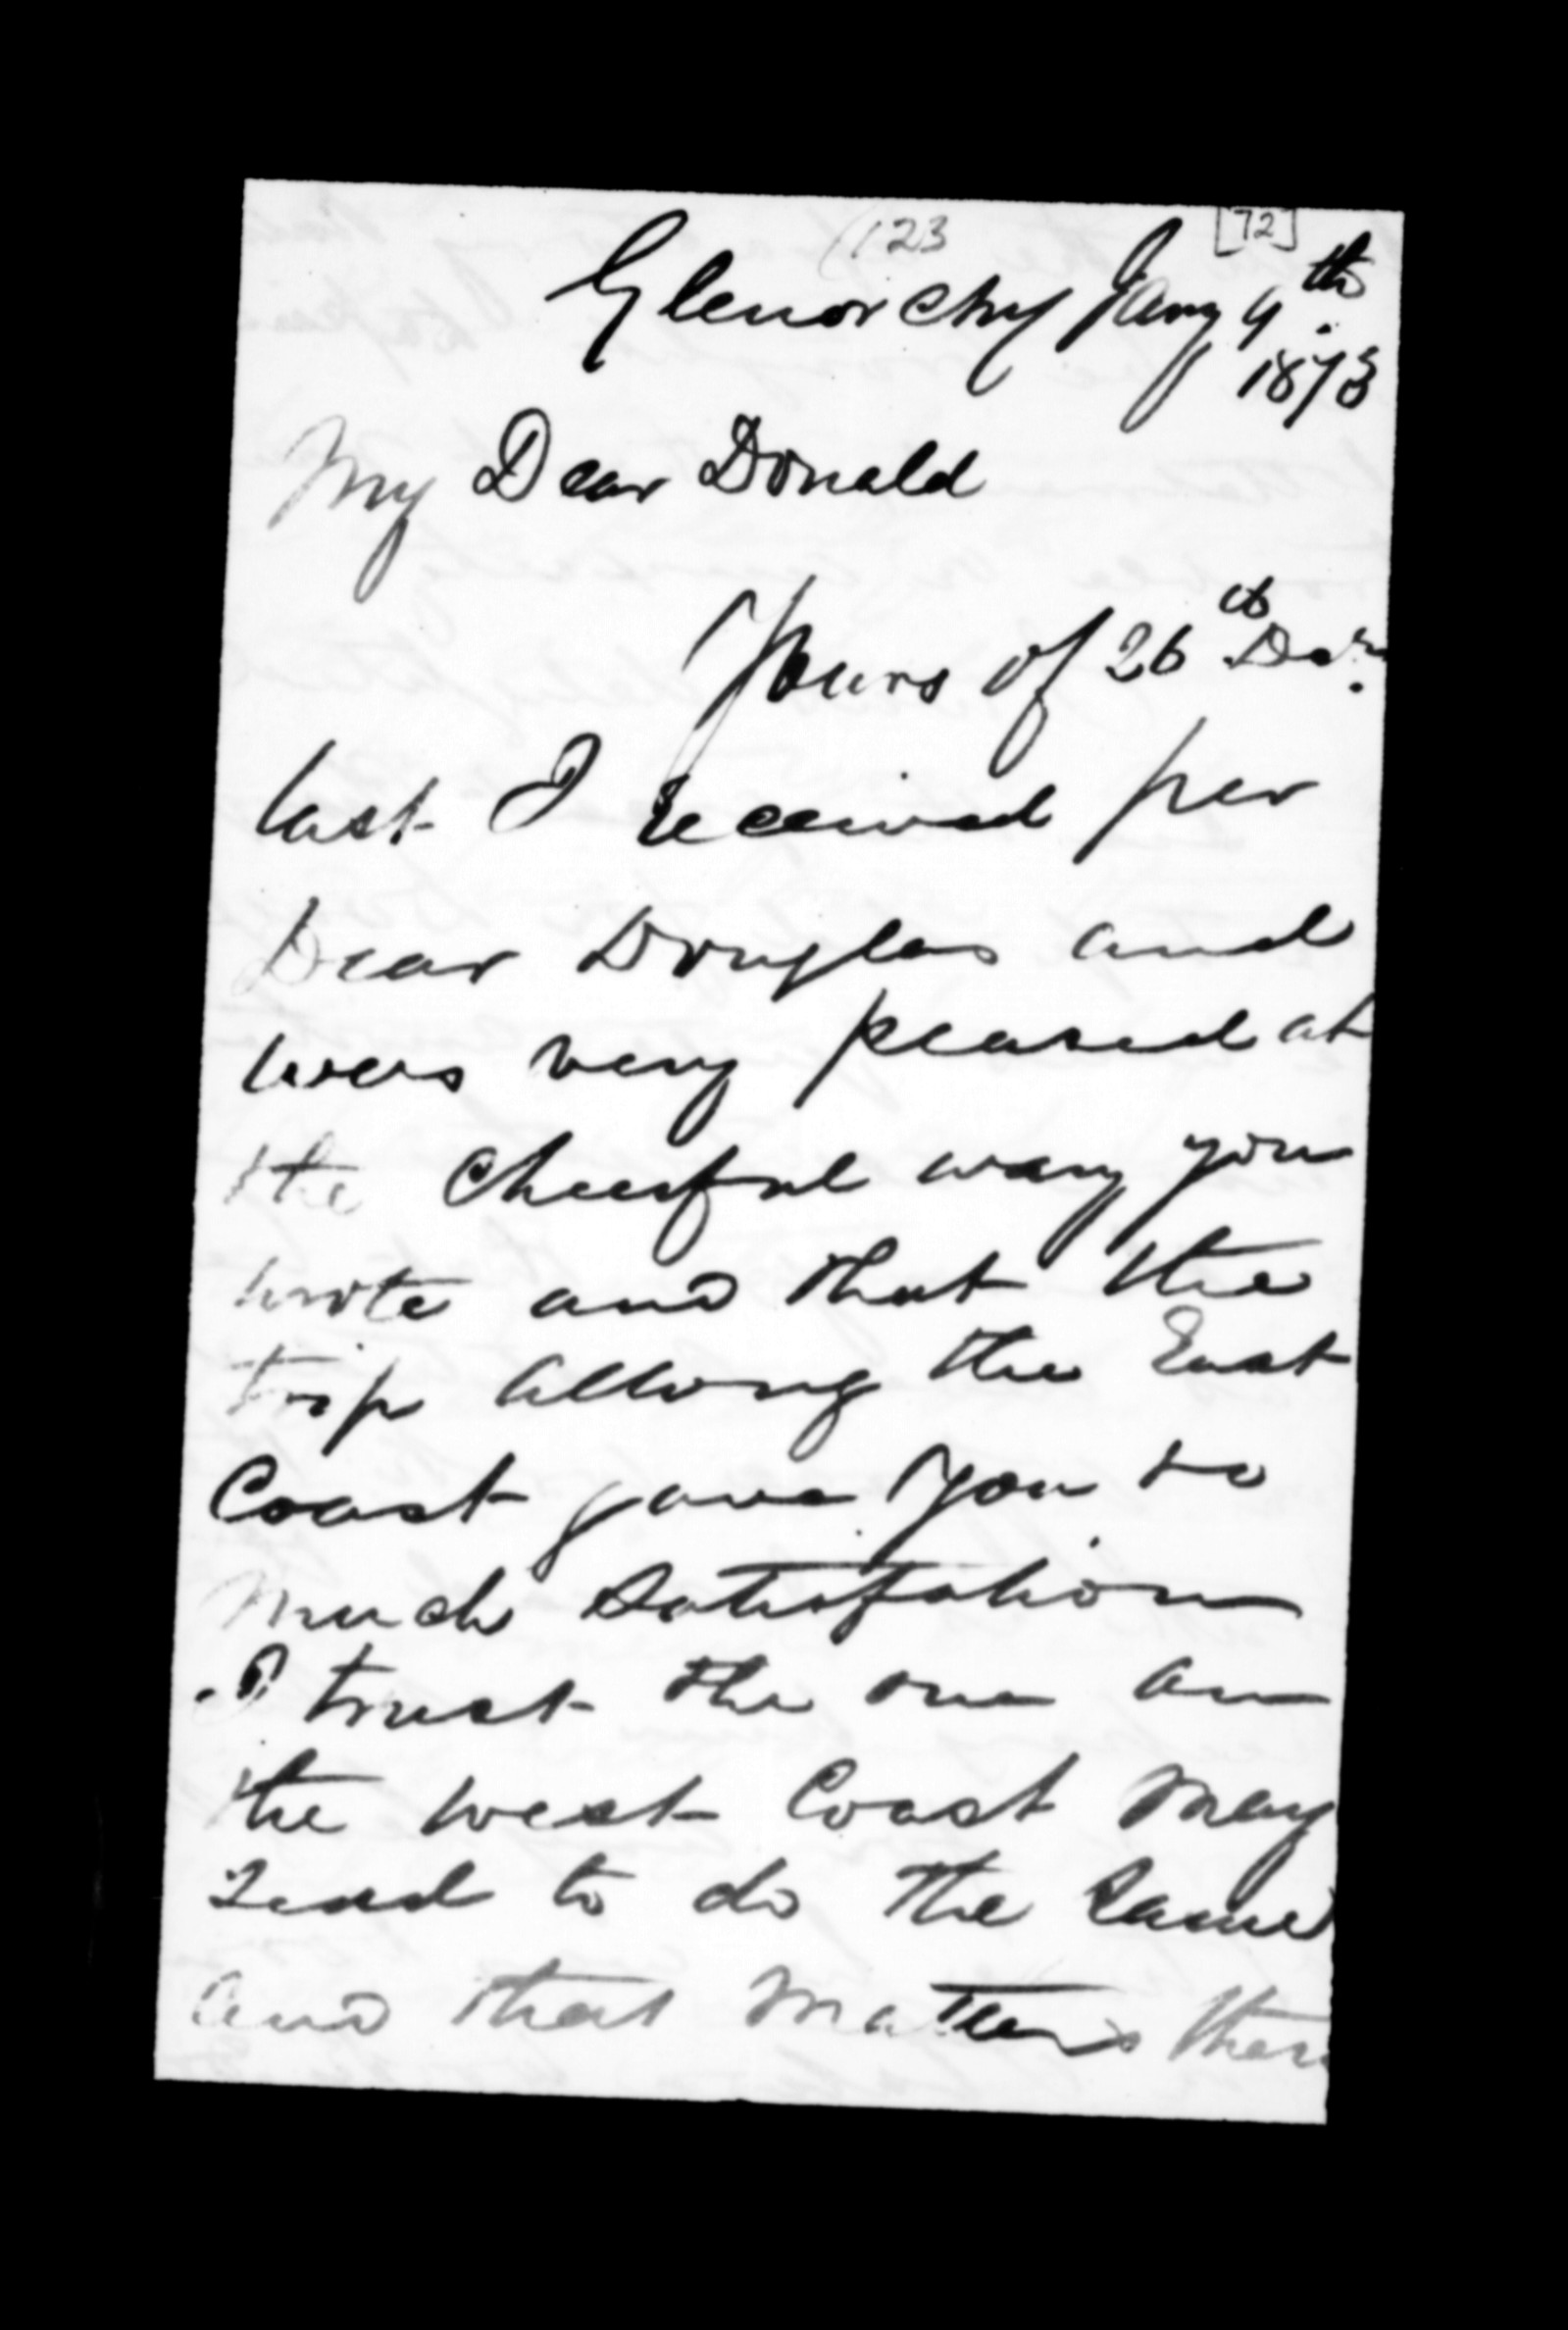 (123 [72]
Glenorchy Jany 9th
1873
My Dear Donald
Yours of 26th Decr
last I received per
Dear Douglas and
was very pleased at
the cheerful way you
wrote and that the
trip allong the East
Coast gave you so
much Satisfation
I trust the one on
the west Coast may
tend to do the same
and that matters there